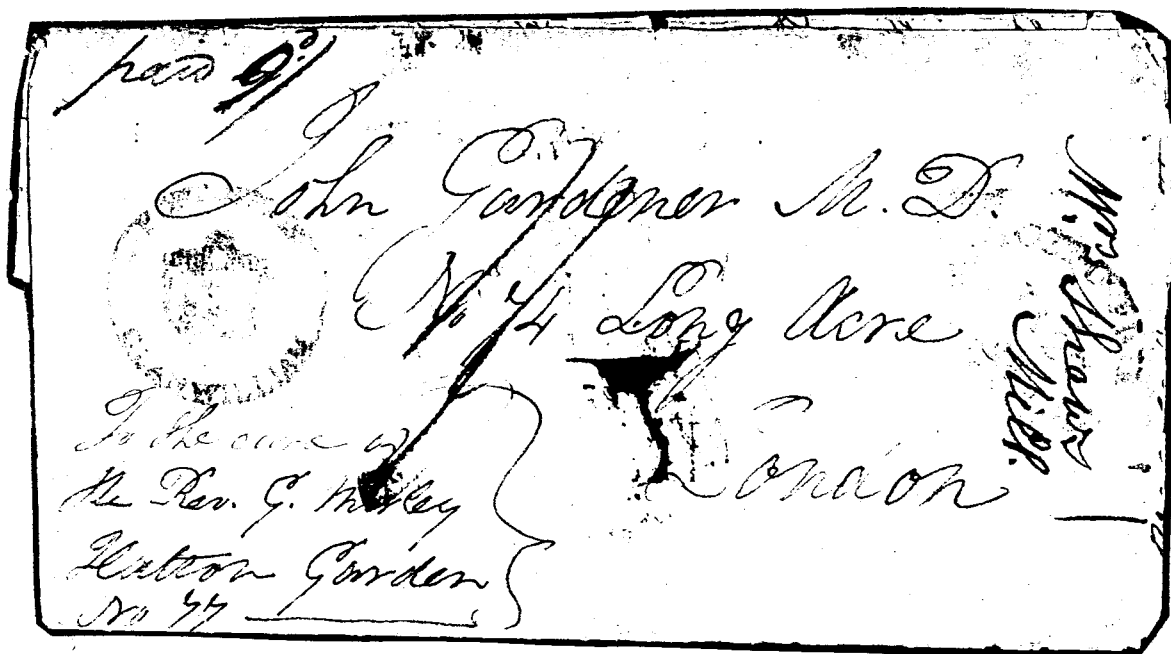 paid
John Gardener M. D.
No 74 Long Acre
London
To the care of
the Rev. G.
Hatton Garden
No 77